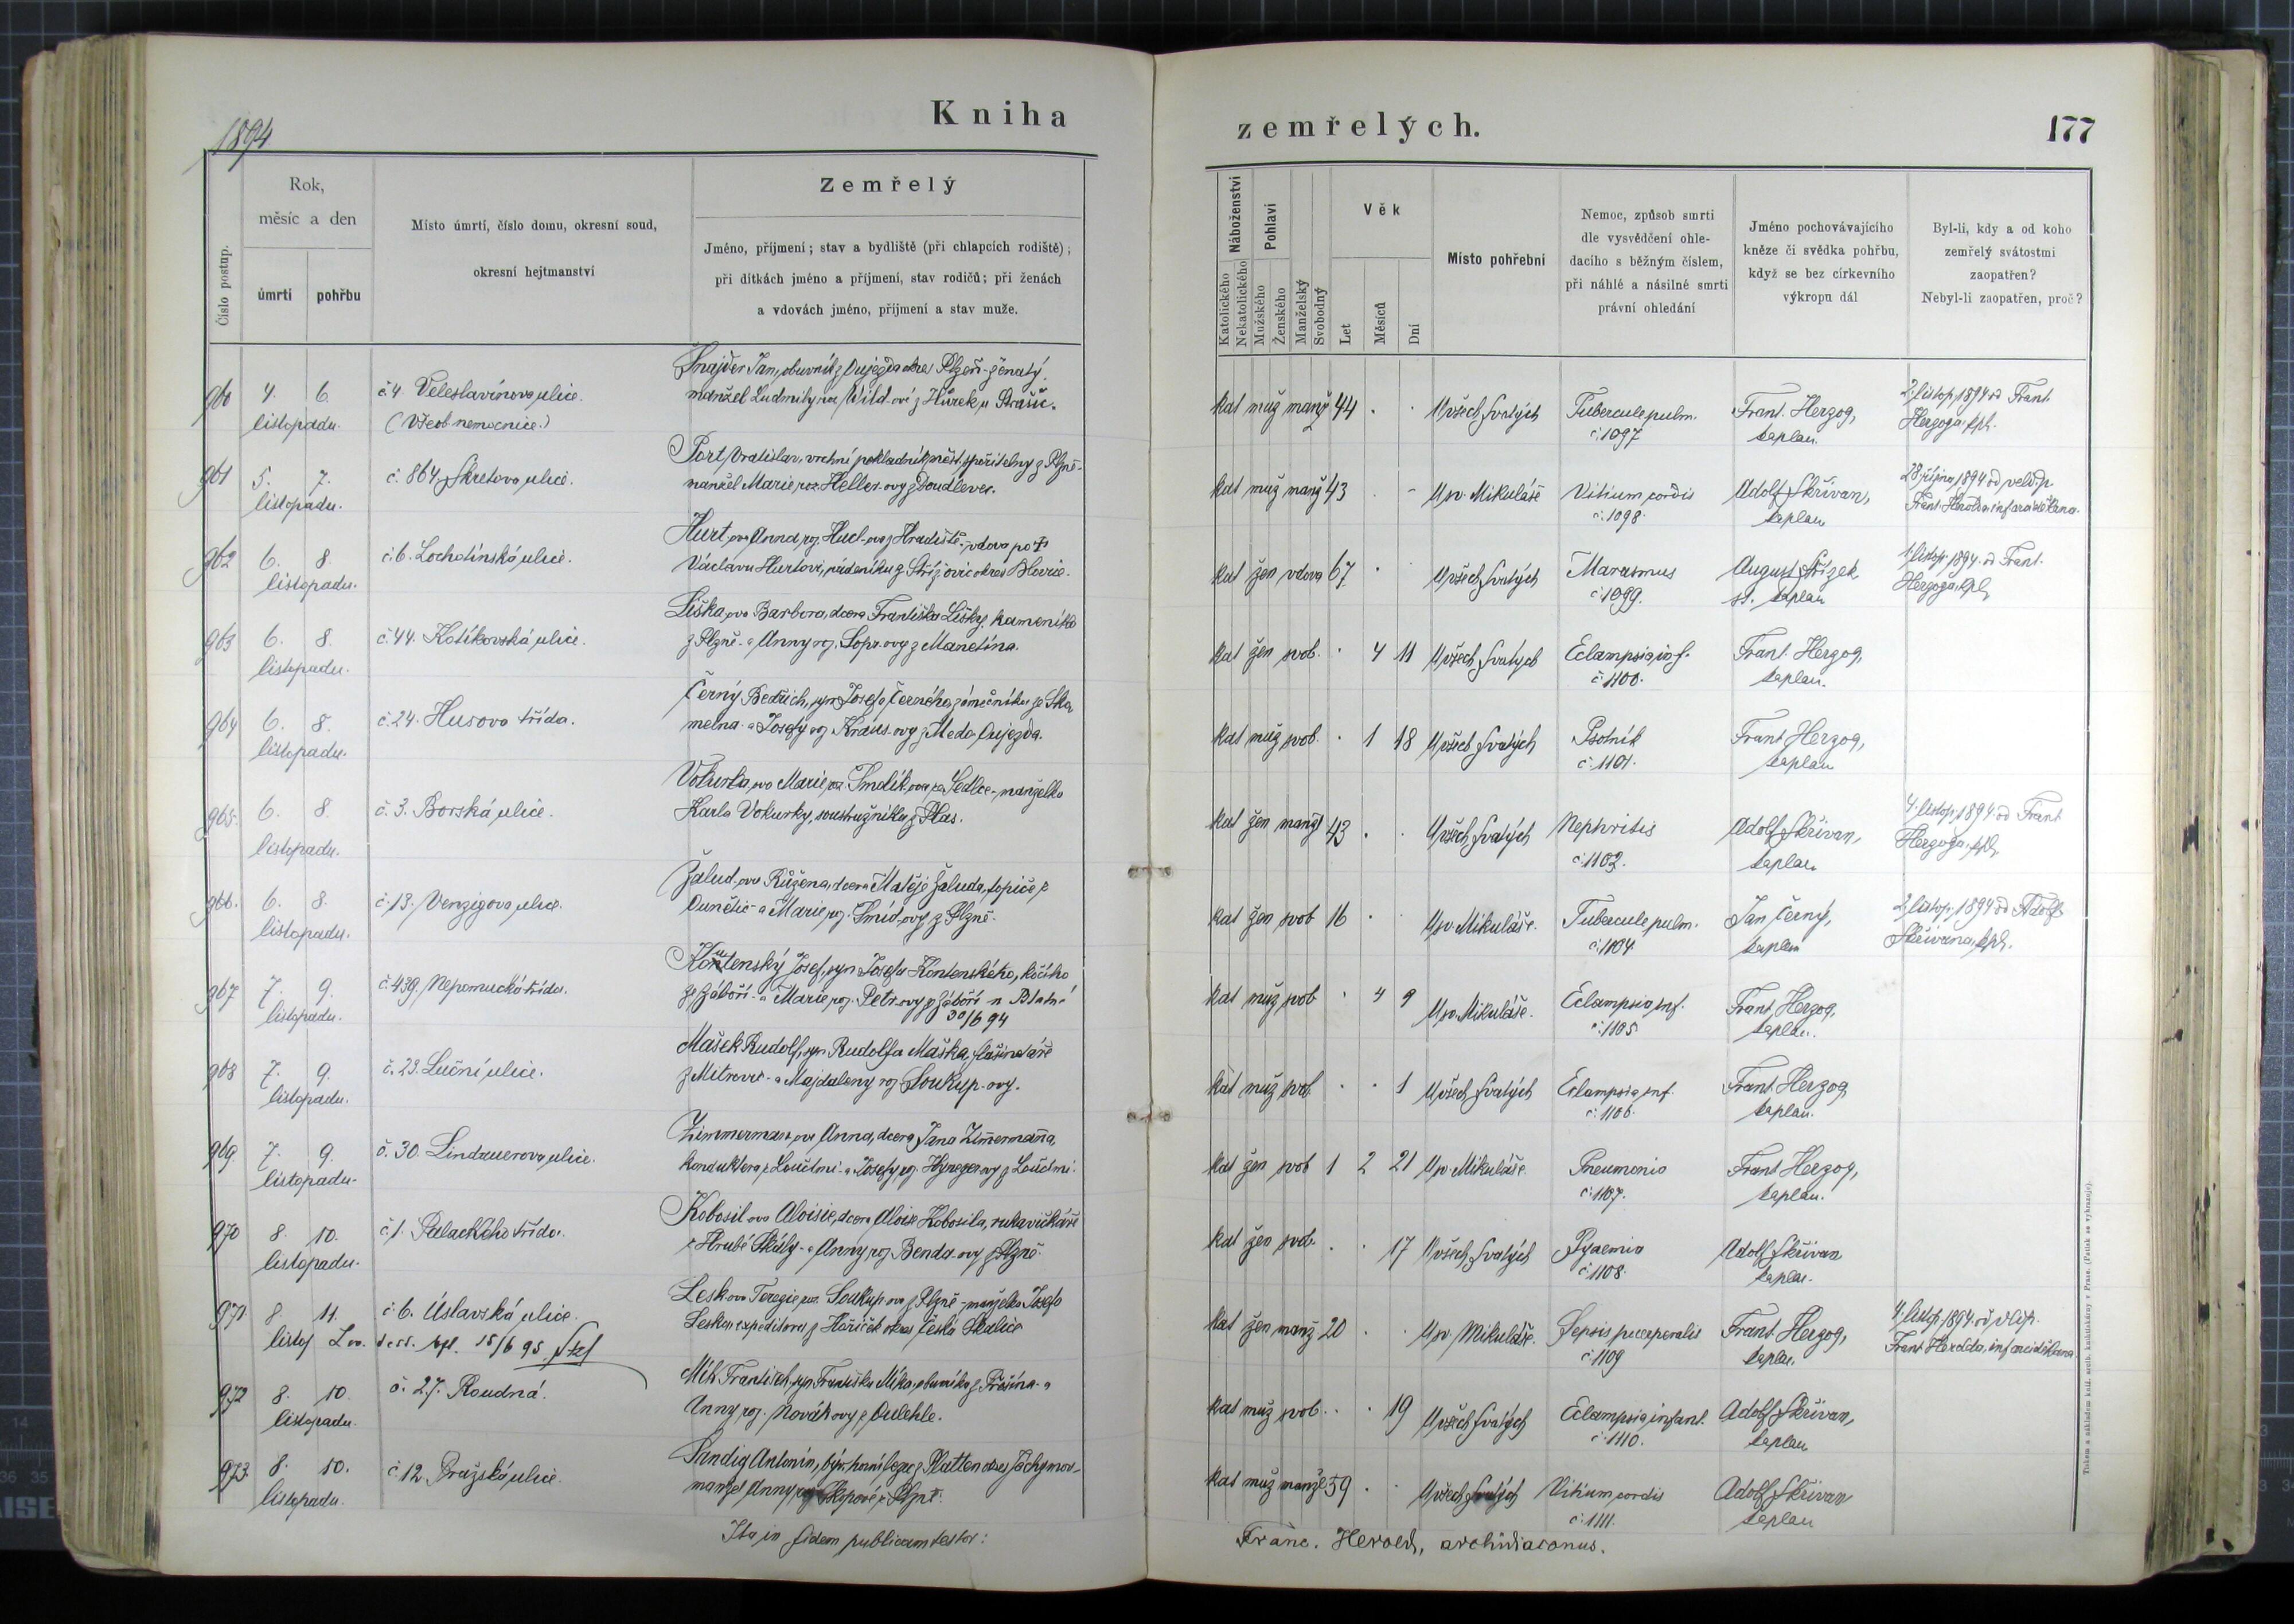 1894
Kniha
zemřelých.
177
Číslo postup.
Rok,
měsíc a den
úmrtí
pohřbu
Místo úmrtí, číslo domu, okresní soud,
okresní hejtmanství
Zemřelý
Jméno, příjmení; stav a bydliště (při chlapcích rodiště);
při dítkách jméno a příjmení, stav rodičů; při ženách
a vdovách jméno, příjmení a stav muže.
Náboženství
Katolického
Nekatolického
Pohlaví
Mužského
Ženského
Manželský
Svobodný
Věk
Let
Měsíců
Dní
Místo pohřební
Nemoc, způsob smrti
dle vysvědčení ohle-
dacího s běžným číslem,
při náhlé a násilné smrti
právní ohledání
Jméno pochovávajícího
kněze či svědka pohřbu,
když se bez církevního
výkropu dál
Byl-li, kdy a od koho
zemřelý svátostmi
zaopatřen?
Nebyl-li zaopatřen, proč?
960 4. 6. listopadu.
č. 4 Veleslavínova ulice.
(Všeob. nemocnice.)
Šnajder Jan, obuvník z Oujezda okres Plzeň - ženatý,
manžel Ludmily roz. Wild-ové z Hůrek u Strašic.
kat muž manž 44 . . U všech Svatých
Tubercule pulm.
č. 1097
Frant. Herzog,
kaplan.
2. listop. 1894 od Frant.
Herzoga, kpl.
961 5. 7. listopadu.
č. 864, Škretova ulice.
Port Vratislav, vrchní pokladník měst. spořitelny z Plzně -
manžel Marie roz. Heller-ovy z Doudlevec.
kat muž manž 43 . - U sv. Mikuláše
Vitium cordis
č. 1098.
Adolf Skřivan,
kaplan
28. října 1894 od veld. p.
Frant. Herolda, inf. arciděkana.
962 6. 8. listopadu.
č. 6. Lochotínská ulice.
Hurt-ova Anna, roz. Hucl-ova z Hradiště - vdova po †
Václavu Hurtovi, nádeníku z Střížovic okres Blovice.
kat žen vdova 67 . . U všech Svatých
Marasmus
č. 1099.
August Střízek
st. kaplan
1. listop. 1894. od Frant.
Herzoga, kpl.
963 6. 8. listopadu.
č. 44. Kotíkovská ulice.
Liška-ova Barbora, dcera Františka Lišky, kameníka
z Plzně - a Anny roz. Sopr-ovy z Manetína.
kat žen svob. . 4 11 U všech Svatých
Eclampsia inf.
č. 1100.
Frant. Herzog,
kaplan.
964 6. 8. listopadu.
č. 24. Husova třída.
Černý Bedřich, syn Josefa Černého, zámečníka ze Ska
melna - a Josefy roz. Kraus-ovy z Medo Oujezda.
kat muž svob. . 1 18 U všech Svatých
Psotník
č. 1101.
Frant. Herzog,
kaplan
965. 6. 8. listopadu.
č. 3. Borská ulice.
Vokurka-ova Marie, roz. Smolík-ova ze Sedlce - manželka
Karla Vokurky, soustružníka z Plas.
kat žen manž 43 . . U všech Svatých
Nephritis
č. 1102.
Adolf Skřivan,
kaplan
4. listop. 1894 od Frant.
Herzoga, kpl.
966. 6. 8. listopadu.
č. 13. Venzigova ulice.
Žalud-ova Růžena, dcera Matěje Žaluda, topiče z
Ounětic - a Marie roz. Šmíd-ovy z Plzně.
kat žen svob 16 . U sv. Mikuláše.
Tubercule pulm.
č. 1104.
Jan Černý,
kaplan
2. listop. 1894 od Adolf
Skřivana, kpl.
967 7. 9. listopadu.
č. 439. Nepomucká třída.
Kontenský Josef, syn Josefa Kontenského, kočího
ze Záboří - a Marie roz. Petr-ovy z Záboří n Blatná
30/6 94
kat muž svob . 4 9 U sv. Mikuláše.
Eclampsia inf.
č. 1105
Frant. Herzog,
kaplan.
968 7. 9. listopadu.
č. 23. Luční ulice.
Mašek Rudolf, syn Rudolfa Maška, flašinetáře
z Mitrovic - a Majdaleny roz. Soukup-ovy.
kat muž svob. . . 1 U všech Svatých
Eclampsia inf.
č. 1106.
Frant. Herzog
kaplan.
969. 7. 9. listopadu.
č. 30. Lindauerova ulice.
Zimmermann-ova Anna, dcera Jana Zimermanna,
konduktora z Loučími - a Josefy roz. Hyneger-ovy z Loučími.
kat žen svob 1 2 21 U sv. Mikuláše
Pneumonia
č. 1107.
Frant. Herzog,
kaplan.
970 8. 10. listopadu.
č. 1. Palackého třída.
Kobosil-ova Aloisie, dcera Aloise Kobosila, rukavičkáře
z Hrubé Skály - a Anny roz. Benda-ovy z Plzně.
kat žen svob. . . 17 U všech Svatých
Pyaemia
č. 1108.
Adolf Skřivan
kaplan.
971 8 11. listop
č. 6. Úslavská ulice.
15/6 95.
Lesk-ova Terezie, roz. Soukup-ova z Plzně - manželka Josefa
Leska, expeditora z Hořiček okres Česká Skalice
kat žen manž 20 . . U sv. Mikuláše.
Sepsis puerperalis
č. 1109
Frant. Herzog,
kaplan.
4. listop. 1894 od vldp.
Frant. Herolda, inf. arciděkana
972 8. 10. listopadu.
č. 27. Roudná.
Mík František, syn Františka Míka, obuvníka z Přešína - a
Anny roz. Novák-ovy z Oulehle.
kat muž svob. . . 19 U všech Svatých
Eclampsia infant.
č. 1110.
Adolf Skřivan,
kaplan
973. 8. 10. listopadu.
č. 12. Pražská ulice.
Sandig Antonín, z Platten okres Jáchymov -
manžel Anny roz. Skopové z Plzně.
kat muž manžel 59 . . U všech Svatých
Vitium cordis
č. 1111.
Adolf Skřivan
kaplan
Ita in fidem publicam testor:
Franc. Herold, archidiaconus.